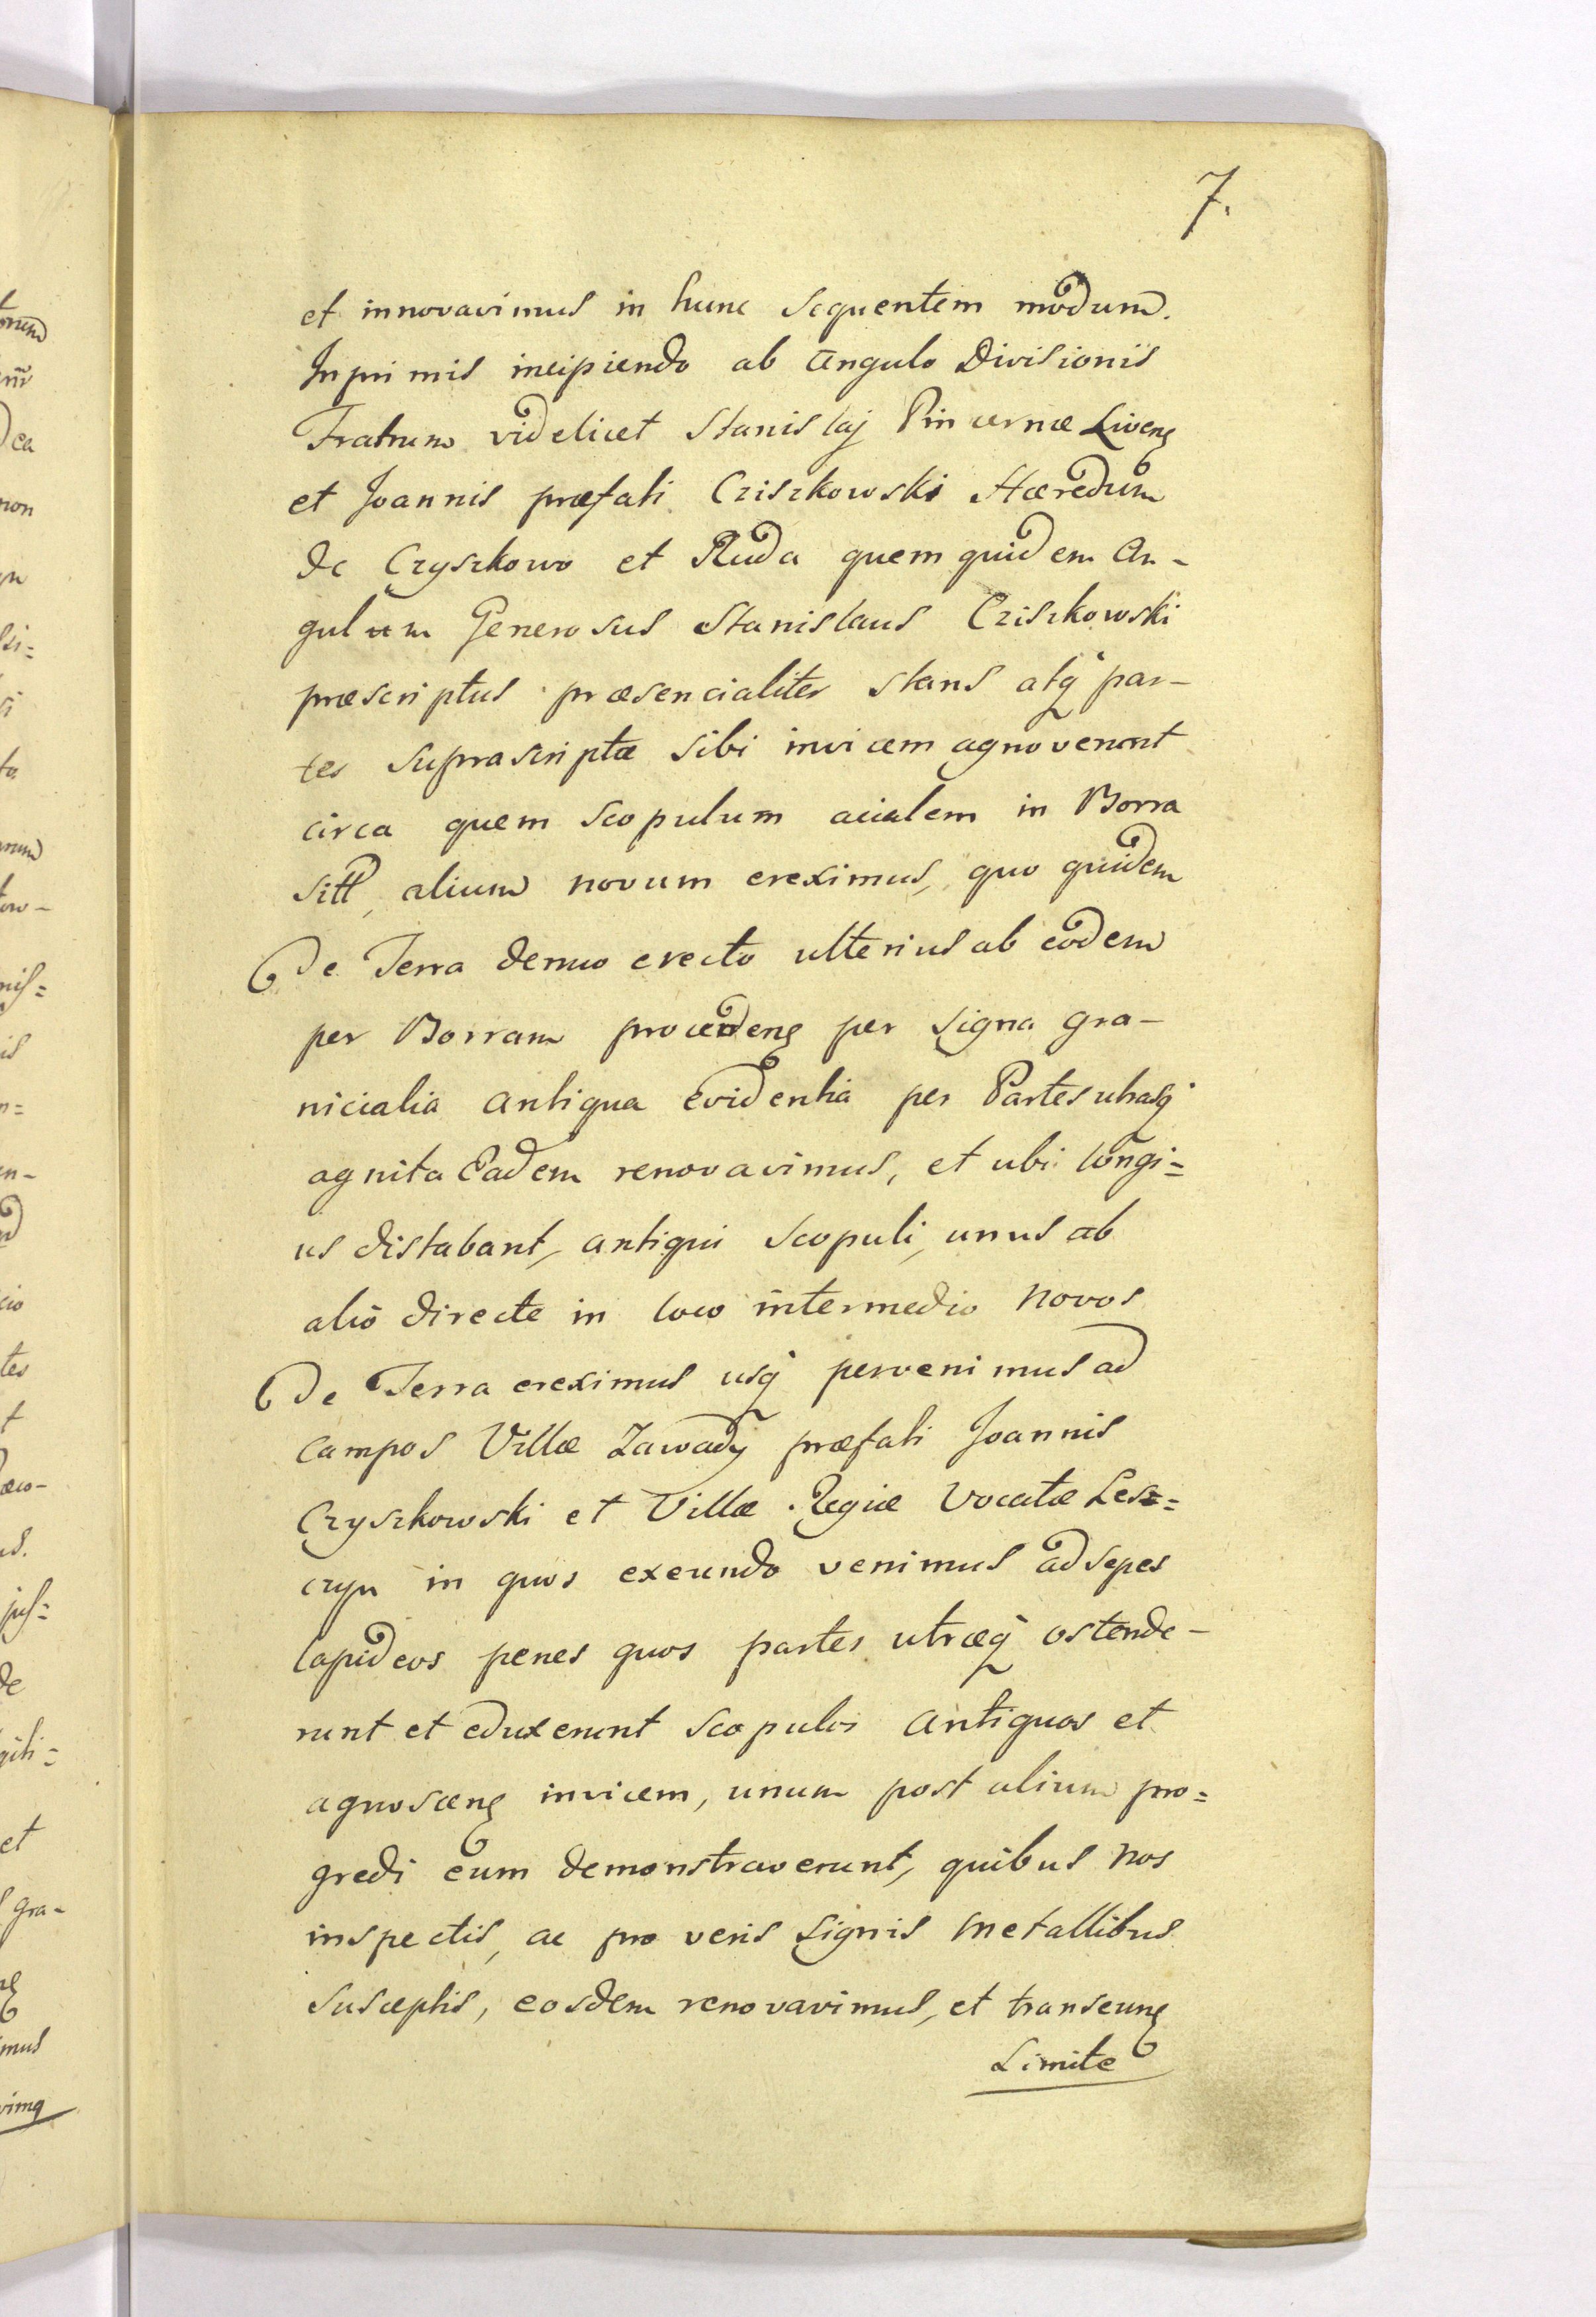 7.
et innovavimus in hunc sequentem modum.
Inprimis incipiendo ab angulo Divisionis
Fratrum videlicet Stanislaj Pincernæ Livenς
et Joannis præfati Cziszkowski Hæredum
de Czyszkowo et Ruda quem quidem An-
gulum Generosus Stanislaus Cziszkowski
præscriptus præsencialiter stans atq par-
tes suprascriptæ sibi invicem agnoverunt
circa quem scopulum acialem in Borra
sitt, alium novum ereximus, quo quidem
De Terra denuo erecto ulterius ab eodem
per Borram procedenς per signa gra-
nicialia antiqua evidentia per Partes utrasq
agnita Eadem renovavimus, et ubi longi=
us distabant, antiqui scopuli, unus ab
alio directe in loco intermedio novos
De Terra ereximus usq pervenimus ad
campos Villæ Zawady præfati Joannis
Czyszkowski et Villæ Regiæ vocatæ Lesz=
czyn in quos exeundo venimus ad sepes
lapideos penes quos partes utræq ostende-
runt et eduxerunt scopulos antiquos et
agnoscenς invicem, unum post alium pro=
gredi eum demonstraverunt, quibus nos
inspectis, ac pro veris signis metallibus
susceptis, eosdem renovavimus, et transeunς
Limite